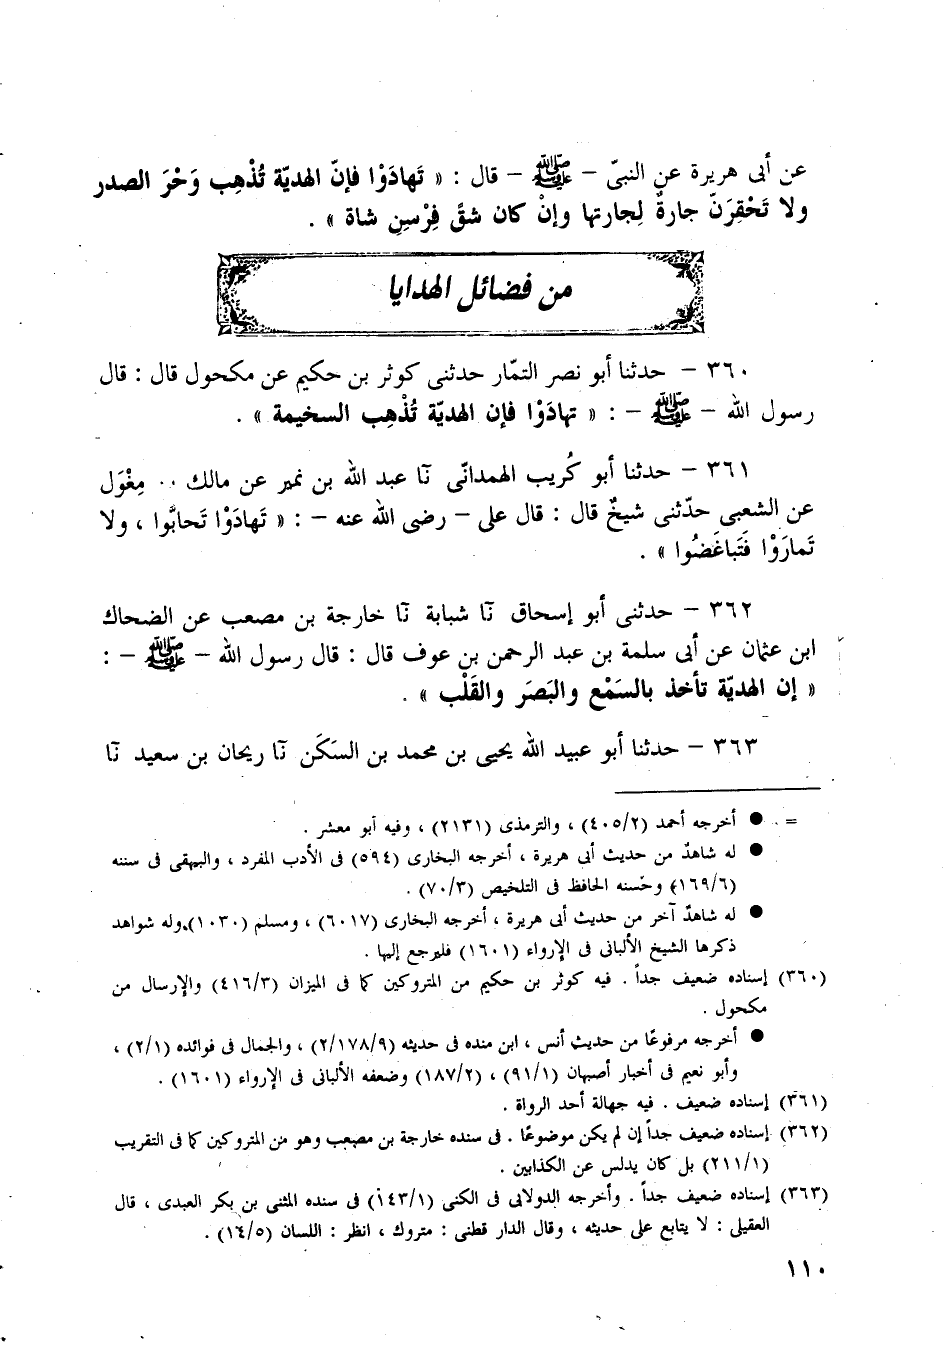 عن أبى هريرة عن النبىّ – ﷺ – قال : « تَهادَوْا فإنّ الهديّة تُذْهِب وَحْرَ الصدر
ولا تَحْقِرَنّ جارةٌ لِجارتها وإنْ كان شقَّ فِرْسِنِ شاة » .
من فضائل الهدايا
٣٦٠ – حدثنا أبو نصر التمّار حدثنى كوثر بن حكيم عن مكحول قال : قال
رسول الله – ﷺ – : « تهادَوْا فإن الهديّة تُذْهب السخيمة » .
٣٦١ – حدثنا أبو كُريب الهمدانّى نَا عبد الله بن نمير عن مالك .. مِغْوَل
عن الشعبى حدّثنى شيخٌ قال : قال على – رضى الله عنه – : « تَهادَوْا تَحابُّوا ، ولا
تَمارَوْا فَتَباغَضُوا » .
٣٦٢ – حدثنى أبو إسحاق نَا شبابة نَا خارجة بن مصعب عن الضحاك
ابن عثمان عن أبى سلمة بن عبد الرحمن بن عوف قال : قال رسول الله – ﷺ – :
« إن الهديّة تأخذ بالسَمْع والبَصَر والقَلْب » .
٣٦٣ – حدثنا أبو عبيد الله يحيى بن محمد بن السَكَن نَا ريحان بن سعيد نَا
= ● أخرجه أحمد (٤٠٥/٢) ، والترمذى (٢١٣١) ، وفيه أبو معشر .
● له شاهدٌ من حديث أبى هريرة ، أخرجه البخارى (٥٩٤) فى الأدب المفرد ، والبيهقى فى سننه
(١٦٩/٦) وحّسنه الحافظ فى التلخيص (٧٠/٣) .
● له شاهدٌ آخر من حديث أبى هريرة ، أخرجه البخارى (٦٠١٧) ، ومسلم (١٠٣٠)،وله شواهد
ذكرها الشيخ الألبانى فى الإرواء (١٦٠١) فليرجع إليها .
(٣٦٠) إسناده ضعيف جداً . فيه كوثر بن حكيم من المتروكين كما فى الميزان (٤١٦/٣) والإرسال من
مكحول .
● أخرجه مرفوعًا من حديث أنس ، ابن منده فى حديثه (٢/١٧٨/٩) ، والجمال فى فوائده (٢/١) ،
وأبو نعيم فى أخبار أصبهان (٩١/١) ، (١٨٧/٢) وضعفه الألبانى فى الإرواء (١٦٠١) .
(٣٦١) إسناده ضعيف . فيه جهالة أحد الرواة .
(٣٦٢) إسناده ضعيف جداً إن لم يكن موضوعًا . فى سنده خارجة بن مصعب وهو من المتروكين كما فى التقريب
(٢١١/١) بل كان يدلس عن الكذابين .
(٣٦٣) إسناده ضعيف جداً . وأخرجه الدولابى فى الكنى (١٤٣/١) فى سنده المثنى بن بكر العبدى ، قال
العقيلى : لا يتابع على حديثه ، وقال الدار قطنى : متروك ، انظر : اللسان (١٤/٥) .
١١٠